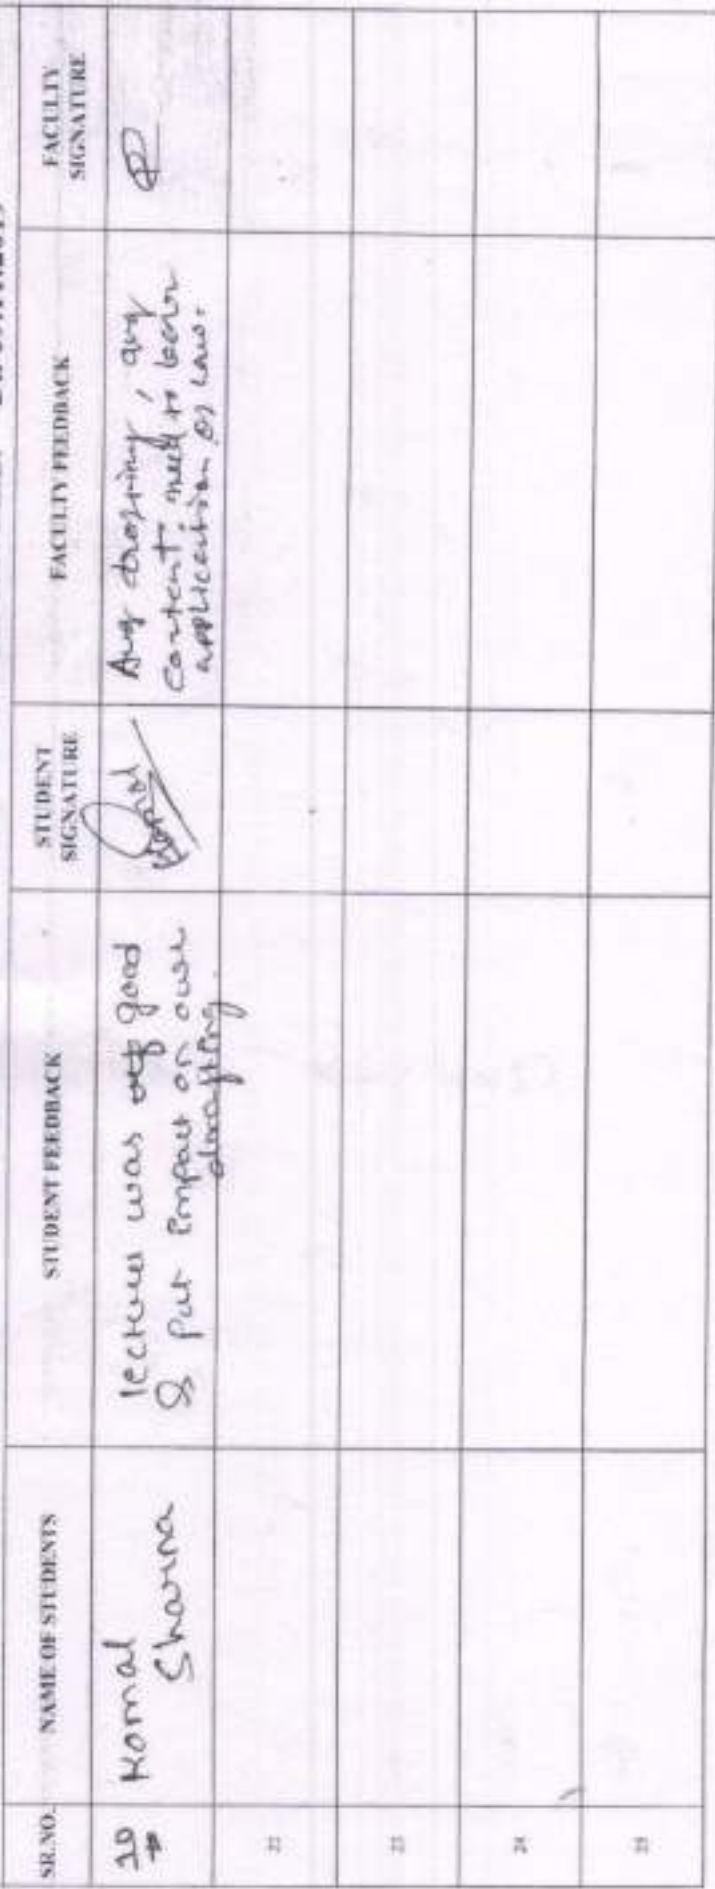 SR.NO.
NAME OF STUDENTS
STUDENT FEEDBACK
STUDENT
SIGNATURE
FACULTY FEEDBACK
FACULTY
SIGNATURE
10
Komal
Sharma
lectures was good
& put impact on our
drafting
Komal
Avg drafting, avg
content, need to learn
application of Law.
22
23
24
25